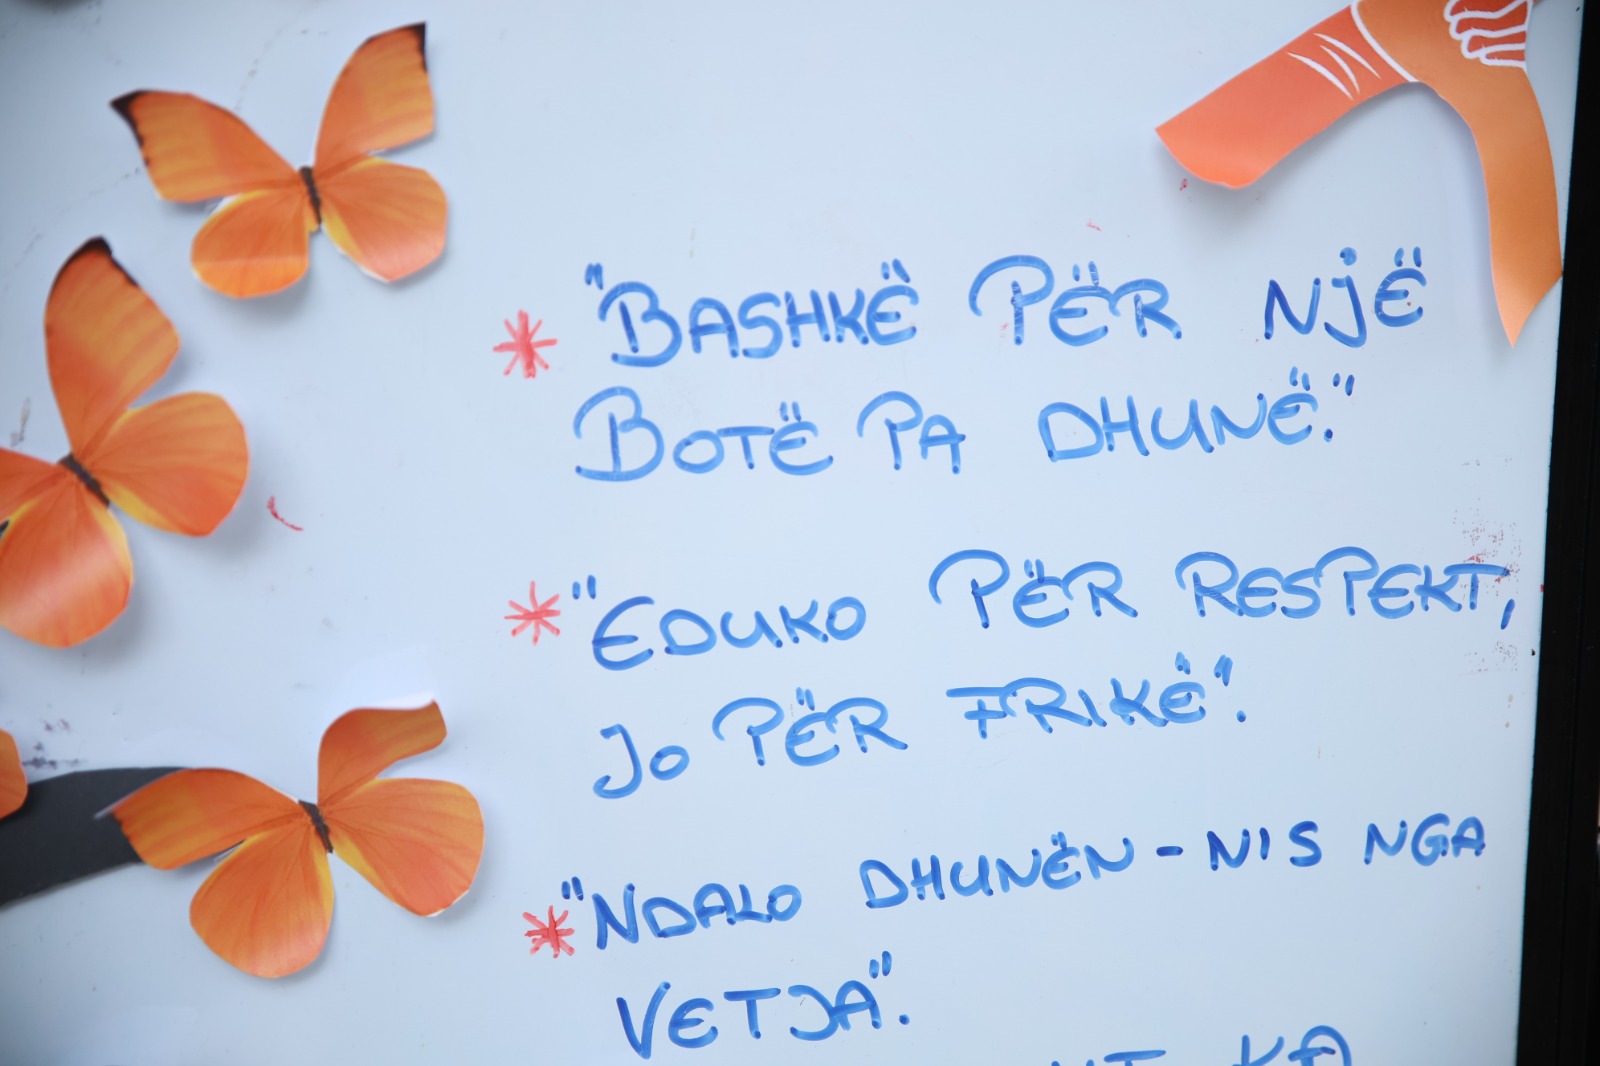 * "BASHKË PËR NJË
BOTË PA DHUNË."
* "EDUKO PËR RESPEKT,
JO PËR FRIKË".
* "NDALO DHUNËN - NIS NGA
VETJA".
KA